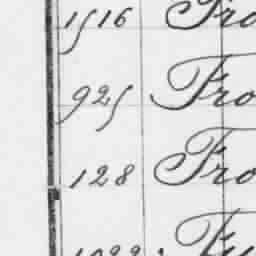 1516 Fro
925 Fro
128 Fro